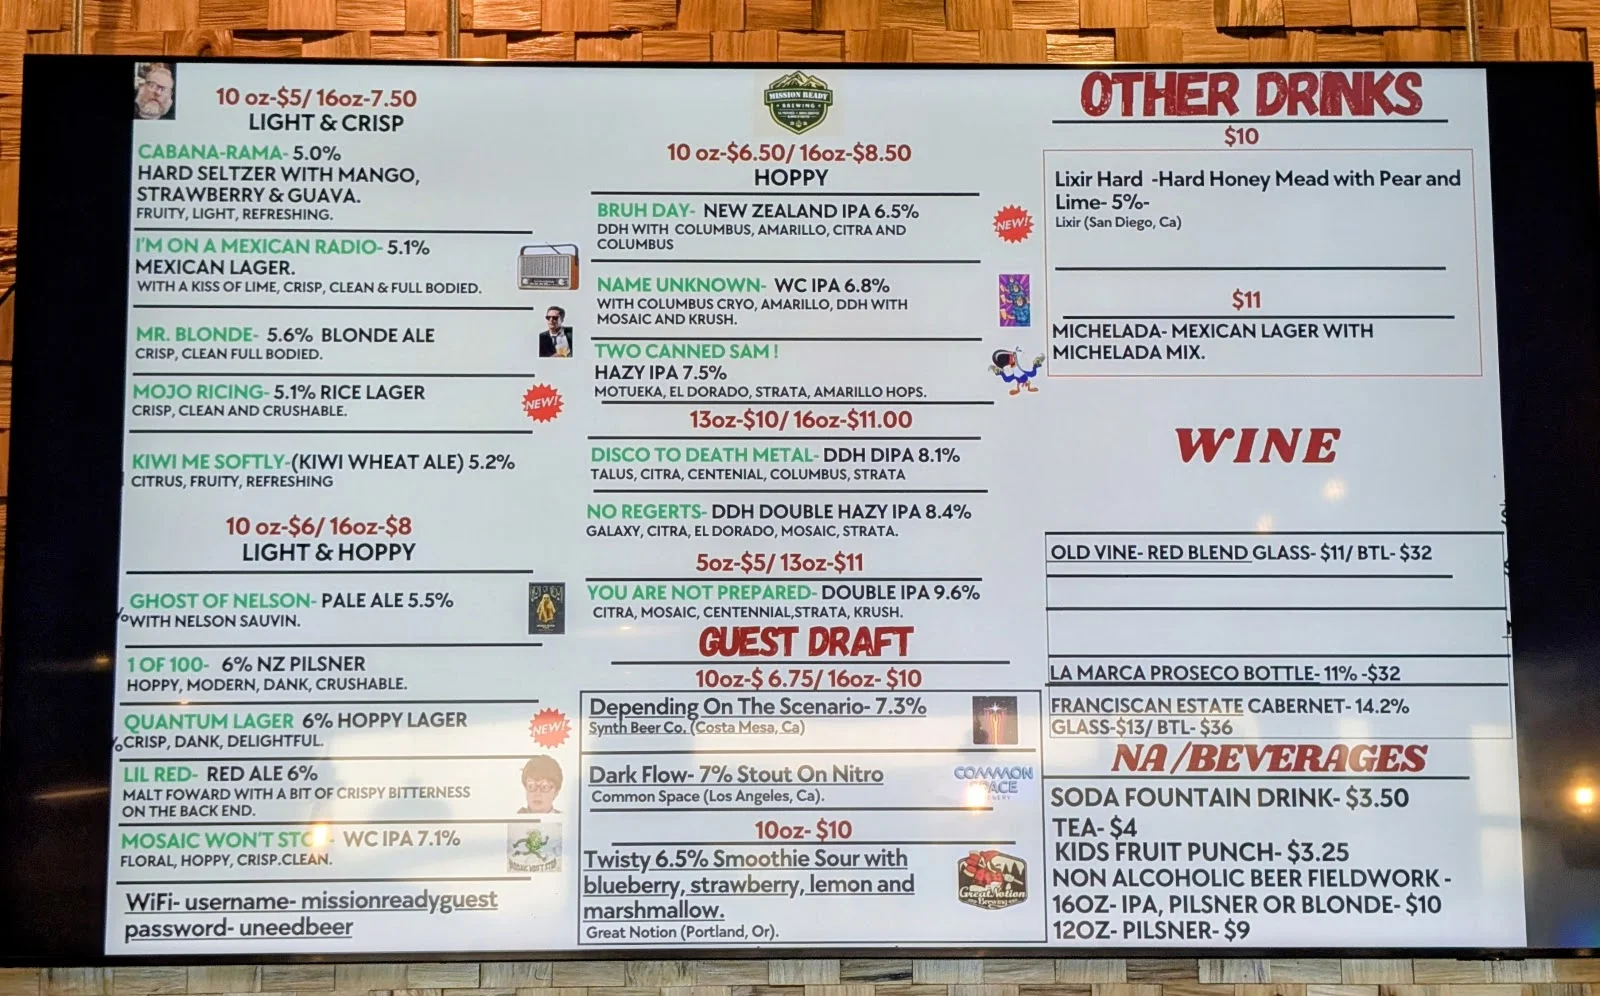 10 oz-$5/ 16oz-7.50
LIGHT & CRISP
CABANA-RAMA- 5.0%
HARD SELTZER WITH MANGO,
STRAWBERRY & GUAVA.
FRUITY, LIGHT, REFRESHING.
I'M ON A MEXICAN RADIO- 5.1%
MEXICAN LAGER.
WITH A KISS OF LIME, CRISP, CLEAN & FULL BODIED.
MR. BLONDE- 5.6% BLONDE ALE
CRISP, CLEAN FULL BODIED.
MOJO RICING- 5.1% RICE LAGER
CRISP, CLEAN AND CRUSHABLE.
NEW!
KIWI ME SOFTLY-(KIWI WHEAT ALE) 5.2%
CITRUS, FRUITY, REFRESHING
10 oz-$6/ 16oz-$8
LIGHT & HOPPY
GHOST OF NELSON- PALE ALE 5.5%
WITH NELSON SAUVIN.
1 OF 100- 6% NZ PILSNER
HOPPY, MODERN, DANK, CRUSHABLE.
QUANTUM LAGER 6% HOPPY LAGER
CRISP, DANK, DELIGHTFUL.
NEW!
LIL RED- RED ALE 6%
MALT FOWARD WITH A BIT OF CRISPY BITTERNESS
ON THE BACK END.
MOSAIC WON'T STOP- WC IPA 7.1%
FLORAL, HOPPY, CRISP.CLEAN.
WiFi- username- missionreadyguest
password- uneedbeer
MISSION READY
BREWING
10 oz-$6.50/ 16oz-$8.50
HOPPY
BRUH DAY- NEW ZEALAND IPA 6.5%
DDH WITH COLUMBUS, AMARILLO, CITRA AND
COLUMBUS
NEW!
NAME UNKNOWN- WC IPA 6.8%
WITH COLUMBUS CRYO, AMARILLO, DDH WITH
MOSAIC AND KRUSH.
TWO CANNED SAM !
HAZY IPA 7.5%
MOTUEKA, EL DORADO, STRATA, AMARILLO HOPS.
13oz-$10/ 16oz-$11.00
DISCO TO DEATH METAL- DDH DIPA 8.1%
TALUS, CITRA, CENTENIAL, COLUMBUS, STRATA
NO REGERTS- DDH DOUBLE HAZY IPA 8.4%
GALAXY, CITRA, EL DORADO, MOSAIC, STRATA.
5oz-$5/ 13oz-$11
YOU ARE NOT PREPARED- DOUBLE IPA 9.6%
CITRA, MOSAIC, CENTENNIAL,STRATA, KRUSH.
GUEST DRAFT
10oz-$ 6.75/ 16oz- $10
Depending On The Scenario- 7.3%
Synth Beer Co. (Costa Mesa, Ca)
Dark Flow- 7% Stout On Nitro
Common Space (Los Angeles, Ca).
COMMON
SPACE
10oz- $10
Twisty 6.5% Smoothie Sour with
blueberry, strawberry, lemon and
marshmallow.
Great Notion (Portland, Or).
Great Notion
Brewing
OTHER DRINKS
$10
Lixir Hard -Hard Honey Mead with Pear and
Lime- 5%-
Lixir (San Diego, Ca)
$11
MICHELADA- MEXICAN LAGER WITH
MICHELADA MIX.
WINE
OLD VINE- RED BLEND GLASS- $11/ BTL- $32
LA MARCA PROSECO BOTTLE- 11% -$32
FRANCISCAN ESTATE CABERNET- 14.2%
GLASS-$13/ BTL- $36
NA /BEVERAGES
SODA FOUNTAIN DRINK- $3.50
TEA- $4
KIDS FRUIT PUNCH- $3.25
NON ALCOHOLIC BEER FIELDWORK -
16OZ- IPA, PILSNER OR BLONDE- $10
12OZ- PILSNER- $9